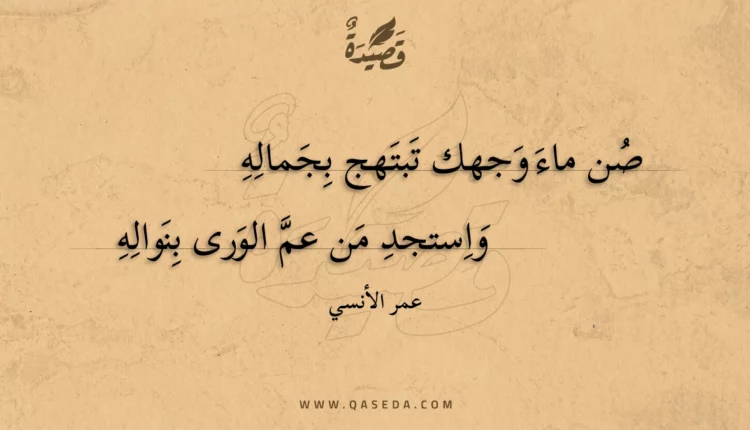 قَصِيدَةٌ
صُن ماءَ وَجهك تَبتَهج بِجَمالِهِ
وَاِستجدِ مَن عمَّ الوَرى بِنَوالِهِ
عمر الأنسي
WWW.QASEDA.COM